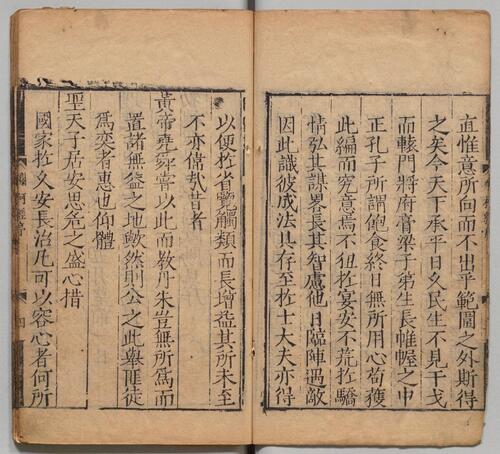 直惟意所向而不出乎範圍之外斯得
之矣今天下承平日久民生不見干戈
而轅門將府膏粱子第生長帷幄之中
正孔子所謂飽食終日無所用心苟獲
此編而究意焉不狃扵宴安不荒扵驕
情弘其謀畧長其智慮他日臨陣遇敵
因此識彼成法具存至扵士大夫亦得
以便扵省覽觸類而長增益其所未至
不亦偉哉昔者
黃帝堯舜嘗以此而敎丹朱豈無所爲而
置諸無益之地歟然則公之此舉匪徒
爲奕者惠也仰體
聖天子居安思危之盛心措
國家扵久安長治凢可以容心者何所
爛柯經序
四